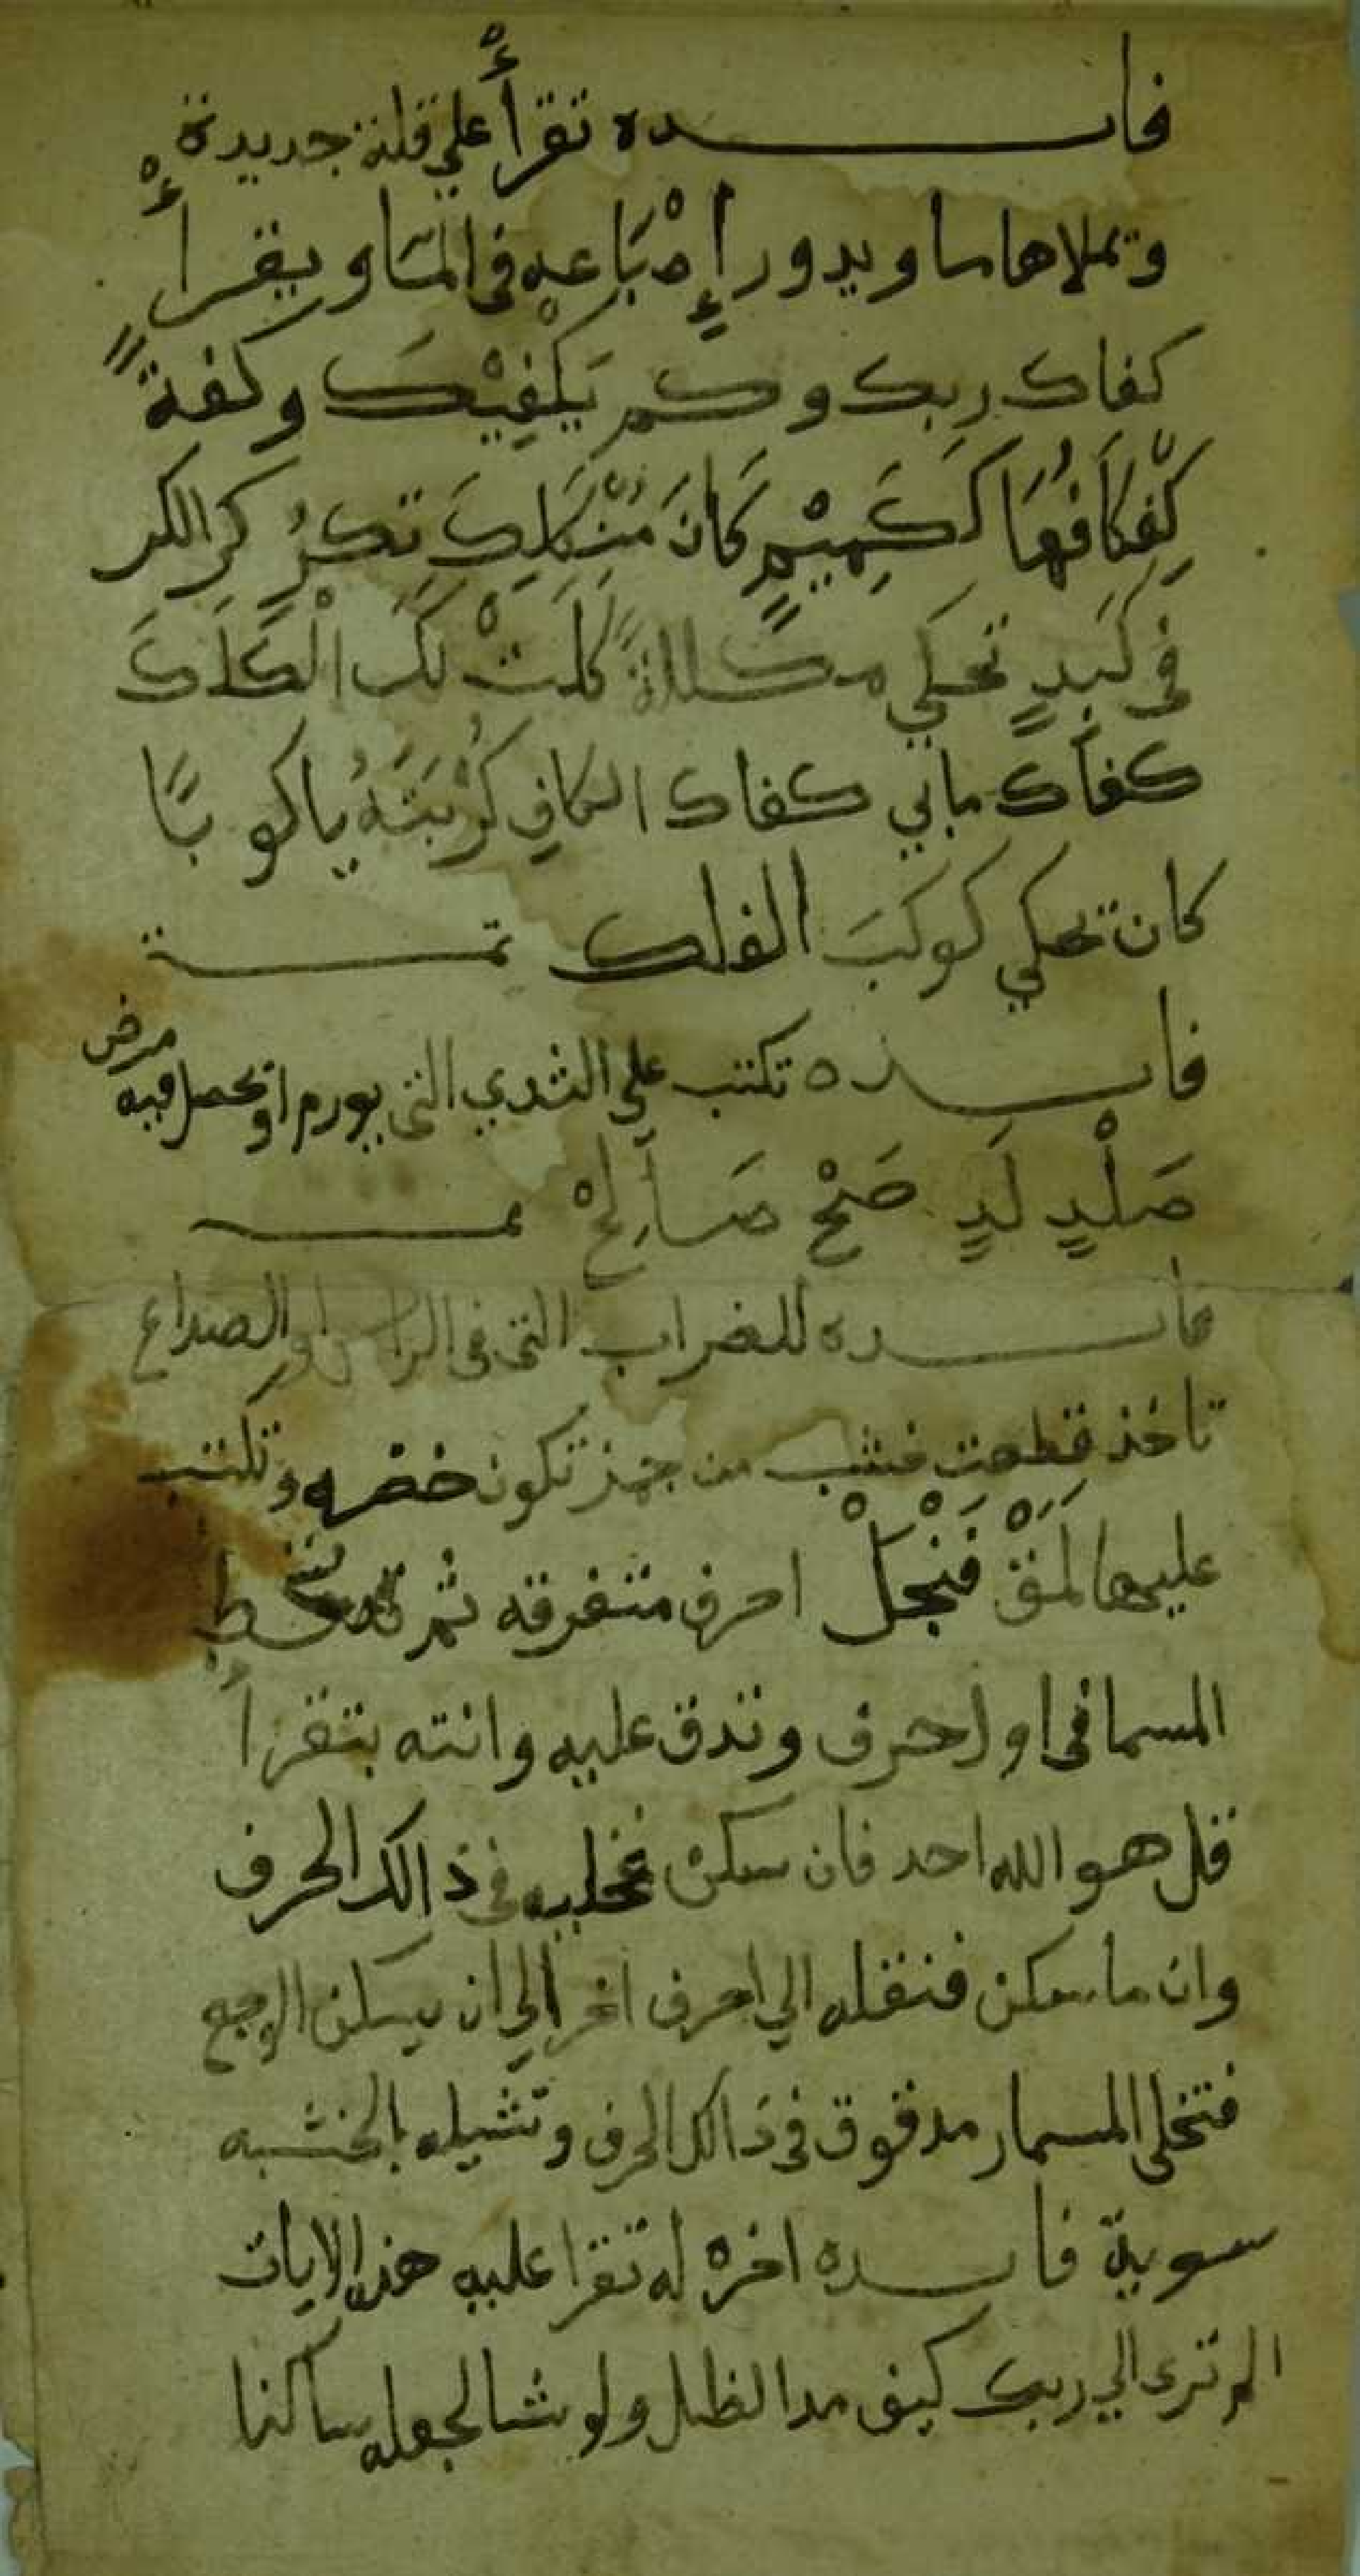 فايده تقرأ على قلة جديدة
وتملاها ما ويدور إصْبَاعه في المَا ويقرأ
كفاك ربك وكم يَكْفِيْكَ وكفةً
كِفْكَافُهَا كَكَمِيْمٍ كَانَ مِنْكَلِكَ تكرُ كرا لكر
في كَبِدٍ تحكي مكللةً كلَتْ لك الْكَلَكَ
كفاك مابي كفاك الكافي كُرْبَتَهُ يا كوبًا
كان تحكي كوكبَ الفلك تمت
فايده تكتب على الثدي التي يورم او يحصل فيه مرض
صَلْدٍ لَدٍ صَحْ صَالِحْ تمت
فايده للضراب التي في الراس او الصداع
تاخذ قطعت خشب من جمز تكون خضره وتكتب
عليها لمَقْ فَنْجَلْ احرف متفرقه ثم تحط
المسما في اول حرف وتدق عليه وانته بتقرا
قل هو الله احد فان سكن تخليه في ذالك الحرف
وان ما سكن فنقله الي احرف اخر الي ان يسكن الوجع
فتخلي المسمار مدقوق في ذالك الحرف وتشيله بالخشبه
سوية فايده اخره له تقرا عليه هذه الايات
الم تري الي ربك كيف مد الظل ولو شا لجعله ساكنا